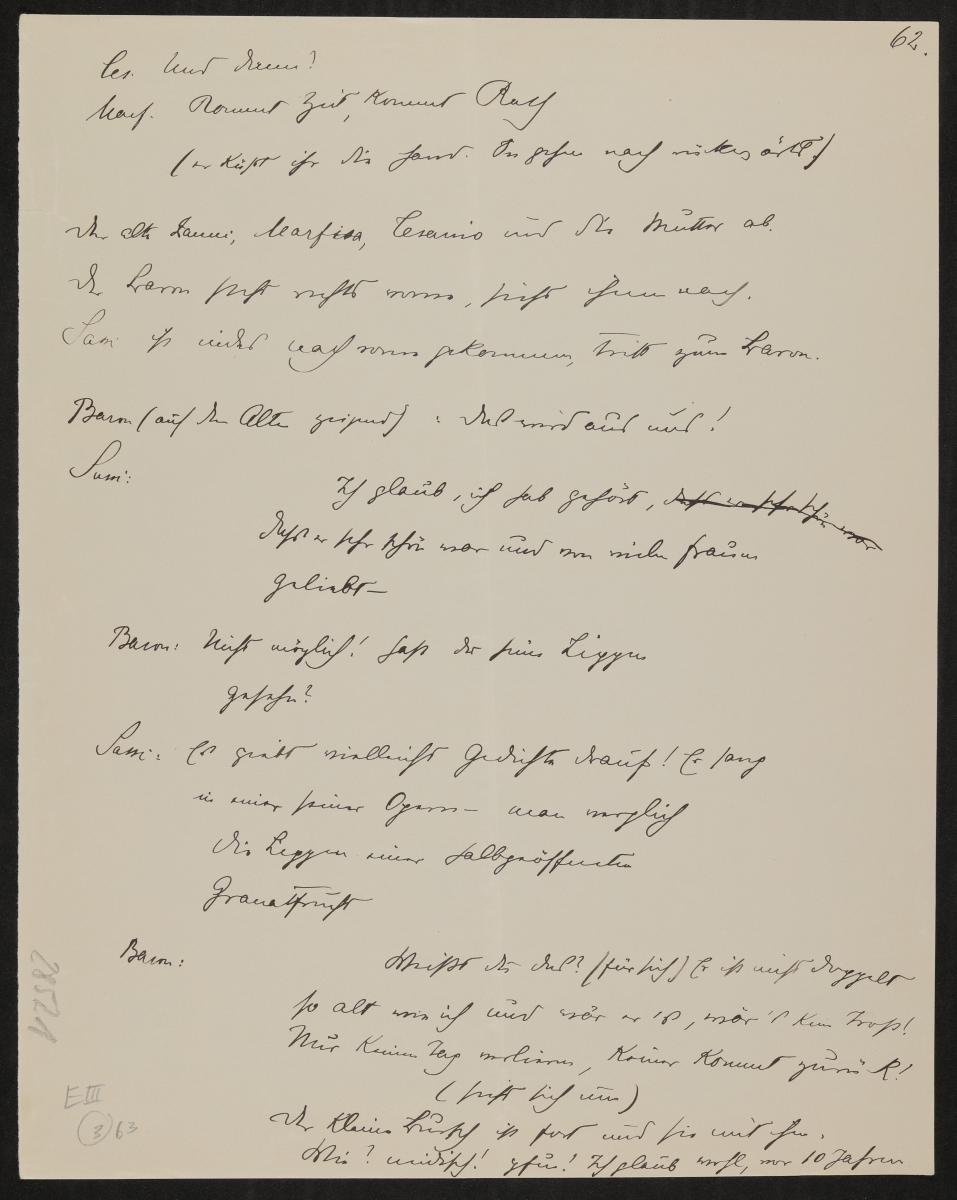 62.
Ces. Und dann?
Marf. Kommt Zeit, kommt Rath
(er küßt ihr die Hand. Sie gehen nach rückwärts.)
Der alte Zanni, Marfisa, Cesarino und die Mutter ab.
Der Baron steht rechts vorne, sieht ihnen nach.
Sassi ist wieder nach vorne gekommen, tritt zum Baron.
Baron (auf den Alten zeigend) : Das wird aus uns!
Sassi:
Ich glaub, ich hab gehört, dass er sehr schön war
dass er sehr schön war und von vielen Frauen
geliebt –
Baron: Nicht möglich! hast du seine Lippen
gesehn?
Sassi: Es giebt vielleicht Gedichte drauf! Er sang
in einer seiner Opern – man verglich
die Lippen einer halbgeöffneten
Granatfrucht
Baron:
Weißt du das? (für sich) Er ist nicht doppelt
so alt wie ich und wär er 's, wär 's kein Trost!
Nur keinen Tag verlieren, keiner kommt zurück!
(sieht sich um)
Der kleine Bursch ist fort und sie mit ihm.
Wie? neidisch! pfui! Ich glaub wohl, vor 10 Jahren
28521
E III
3 63